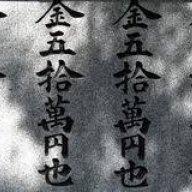 金五拾萬円也
金五拾萬円也